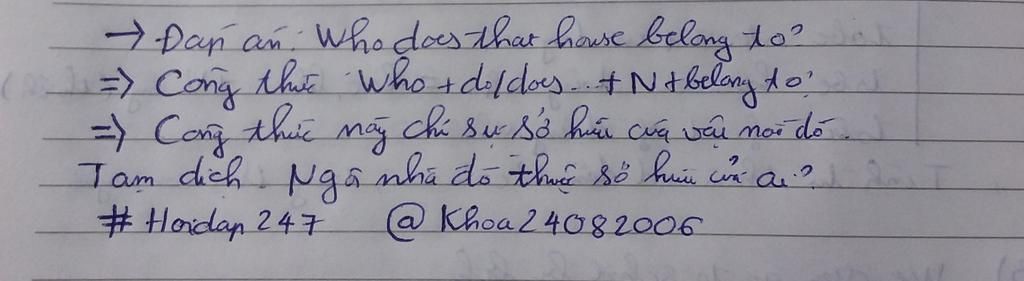 → Đáp án: Who does that house belong to?
=> Công thức: Who + do/does... + N + belong to?
=> Công thức này chỉ sự sở hữu của vật nào đó.
Tạm dịch: Ngôi nhà đó thuộc sở hữu của ai?
# Hoidap247 @Khoa24082006